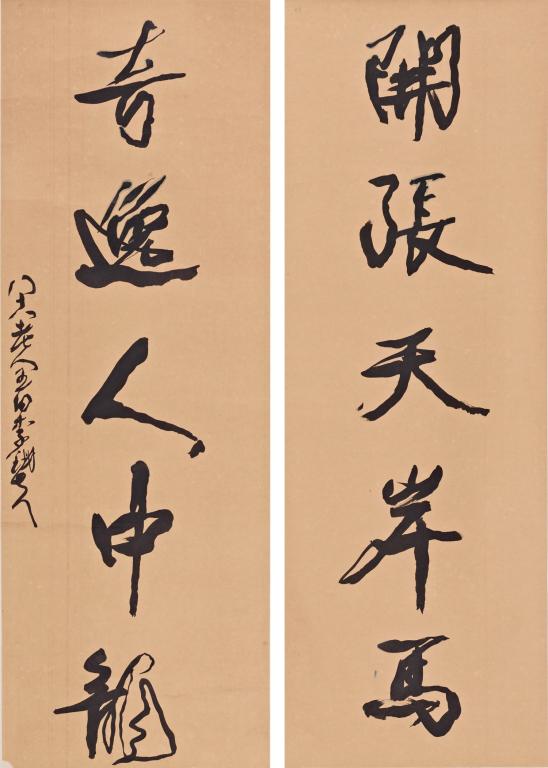 開張天岸馬
奇逸人中龍
老人